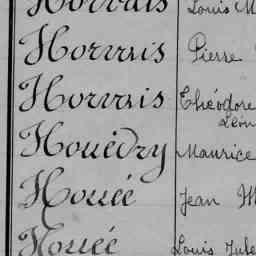 Horvais Louis M
Horvais Pierre
Horvais Théodore
Léon
Houédry Maurice
Houée Jean M
Houée Louis Jule